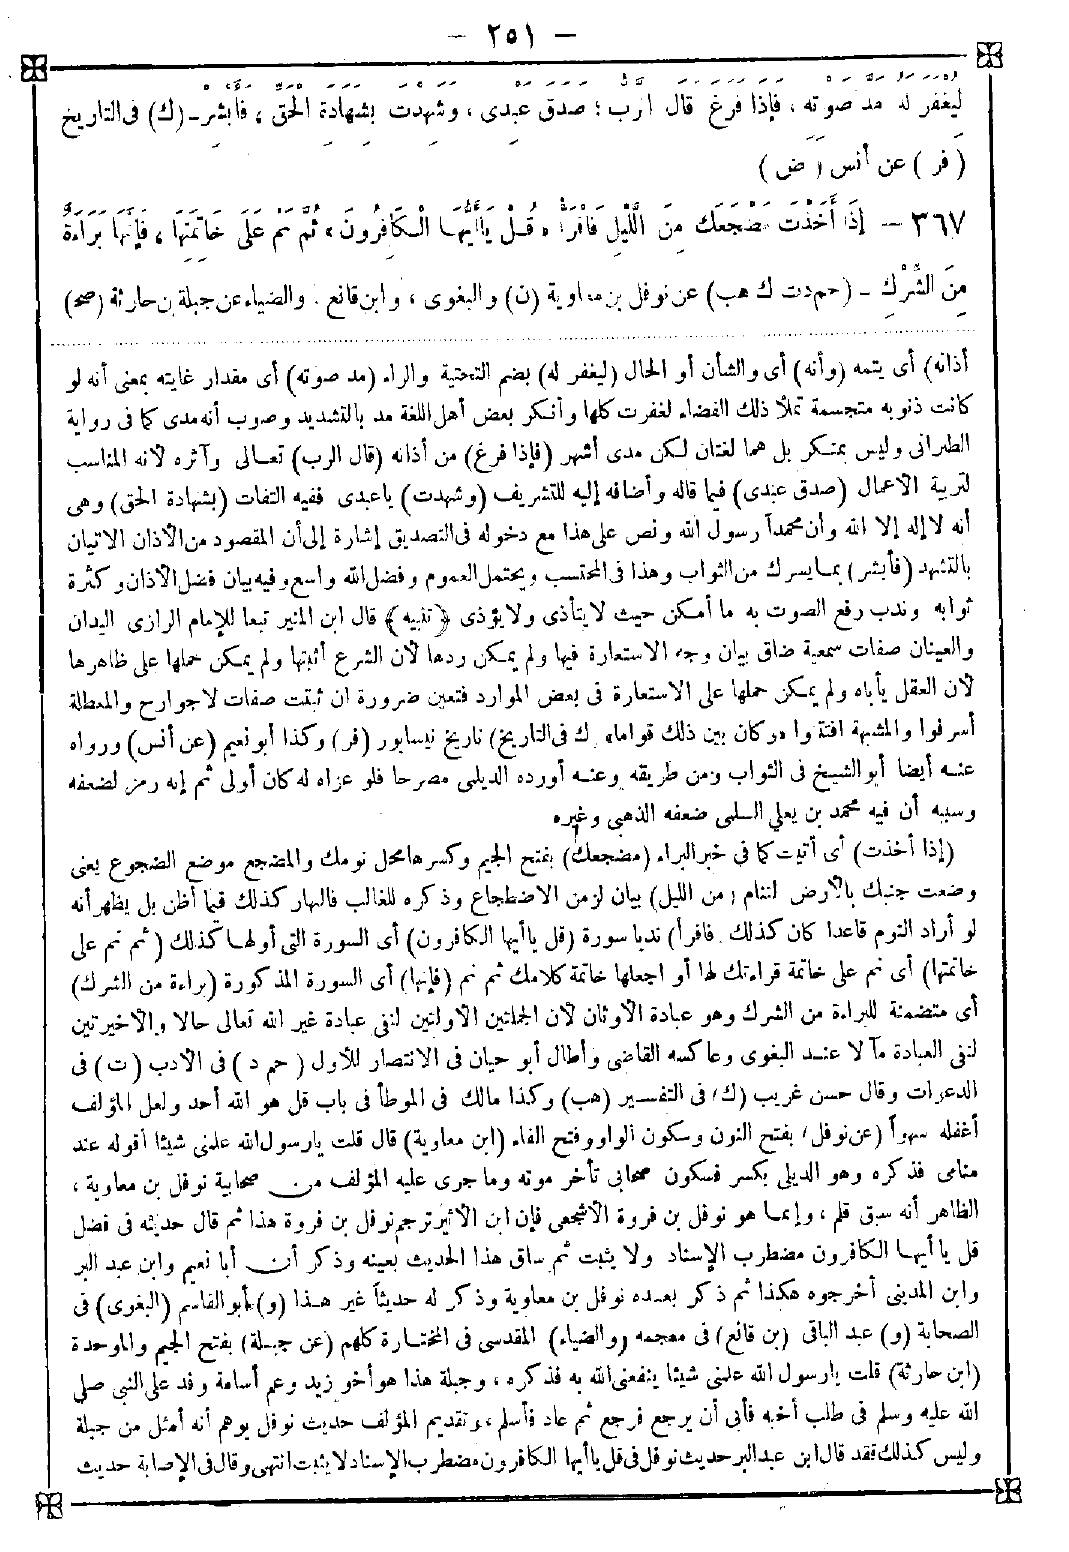 — ٢٥١ —
لِيُغْفَرُ له مد صوته ، فإذا فرغ قال الرب : صدق عبدى ، وشهدت بشهادة الحق ، فأبشر - (ك) فى التاريخ
( فر ) عن أنس ( ض )
٣٦٧ — إِذَا أَخَذْتَ مَضْجَعَكَ مِنَ اللَّيْلِ فَاقْرَأْ « قُلْ يَا أَيُّهَا الْكَافِرُونَ » ثُمَّ نَمْ عَلَى خَاتِمَتِهَا ، فَإِنَّهَا بَرَاءَةٌ
مِنَ الشِّرْكِ - (حم دت ك هب) عن نوفل بن معاوية (ن) والبغوى ، وابن قانع . والضياء عن جبلة بن حارثة (صح)
أذانه) أى يتمه (وأنه) أى والشأن أو الحال (ليغفر له) بضم التحتية والراء (مد صوته) أى مقدار غايته بمعنى أنه لو
كانت ذنوبه متجسمة تملأ ذلك الفضاء لغفرت كلها وأنكر بعض أهل اللغة مد بالتشديد وصوب أنه مدى كما فى رواية
الطبرانى وليس بمنكر بل هما لغتان لكن مدى أشهر (فإذا فرغ) من أذانه (قال الرب) تعالى وآثره لأنه المناسب
لتربية الأعمال (صدق عبدى) فيما قاله وأضافه إليه للتشريف (وشهدت) ياعبدى ففيه التفات (بشهادة الحق) وهى
أنه لا إله إلا الله وأن محمداً رسول الله ونص على هذا مع دخوله فى التصديق إشارة إلى أن المقصود من الأذان الاتيان
بالتشهد (فأبشر) بما يسرك من الثواب وهذا فى المحتسب ويحتمل العموم وفضل الله واسع وفيه بيان فضل الأذان وكثرة
ثوابه وندب رفع الصوت به ما أمكن حيث لا يتأذى ولا يؤذى ﴿تنبيه﴾ قال ابن المنير تبعا للإمام الرازى اليدان
والعينان صفات سمعية ضاق بيان وجه الاستعارة فيها ولم يمكن ردها لأن الشرع أثبتها ولم يمكن حملها على ظاهرها
لأن العقل يأباه ولم يمكن حملها على الاستعارة فى بعض الموارد فتعين ضرورة ان ثبتت صفات لا جوارح والمعطلة
أسرفوا والمشبهة افتتنوا «وكان بين ذلك قواما» (ك فى التاريخ) تاريخ نيسابور (فر) وكذا أبو نعيم (عن أنس) ورواه
عنه أيضا أبو الشيخ فى الثواب ومن طريقه وعنه أورده الديلمى مصرحا فلو عزاه له كان أولى ثم إنه رمز لضعفه
وسببه أن فيه محمد بن يعلى السلمى ضعفه الذهبى وغيره
(إذا أخذت) أى أتيت كما فى خبر البراء (مضجعك) بفتح الجيم وكسرها محل نومك والمضجع موضع الضجوع يعنى
وضعت جنبك بالأرض لتنام (من الليل) بيان لزمن الاضطجاع وذكره للغالب فالنهار كذلك فيما أظن بل يظهر أنه
لو أراد النوم قاعدا كان كذلك (فاقرأ) ندبا سورة (قل يا أيها الكافرون) أى السورة التى أولها كذلك (ثم نم على
خاتمتها) أى نم على خاتمة قراءتك لها أو اجعلها خاتمة كلامك ثم نم (فإنها) أى السورة المذكورة (براءة من الشرك)
أى متضمنة للبراءة من الشرك وهو عبادة الأوثان لأن الجملتين الأولتين لنفى عبادة غير الله تعالى حالا والأخيرتين
لنفى العبادة مآلا عند البغوى وعاكسه القاضى وأطال أبو حيان فى الانتصار للأول ( حم د ) فى الأدب ( ت ) فى
الدعوات وقال حسن غريب (ك) فى التفسير (هب) وكذا مالك فى الموطأ فى باب قل هو الله أحد ولعل المؤلف
أغفله سهواً (عن نوفل) بفتح النون وسكون الواو وفتح الفاء (ابن معاوية) قال قلت يارسول الله علمنى شيئا أقوله عند
منامى فذكره وهو الديلى بكسر فسكون صحابى تأخر موته وما جرى عليه المؤلف من صحابية نوفل بن معاوية ،
الظاهر أنه سبق قلم ، وإنما هو نوفل بن فروة الأشجعى فإن ابن الأثير ترجم نوفل بن فروة هذا ثم قال حديثه فى فضل
قل يا أيها الكافرون مضطرب الإسناد ولا يثبت ثم ساق هذا الحديث بعينه وذكر أن أبا نعيم وابن عبد البر
وابن المدينى أخرجوه هكذا ثم ذكر بعده نوفل بن معاوية وذكر له حديثاً غير هذا (و) أبو القاسم (البغوى) فى
الصحابة (و) عبد الباقى (بن قانع) فى معجمه (والضياء) المقدسى فى المختارة كلهم (عن جبلة) بفتح الجيم والموحدة
(ابن حارثة) قلت يارسول الله علمنى شيئا ينفعنى الله به فذكره ، وجبلة هذا هو أخو زيد وعم أسامة وفد على النبى صلى
الله عليه وسلم فى طلب أخيه فأبى أن يرجع فرجع ثم عاد فأسلم ، وتقديم المؤلف حديث نوفل يوهم أنه أمثل من جبلة
وليس كذلك فقد قال ابن عبد البر حديث نوفل فى قل يا أيها الكافرون مضطرب الإسناد لا يثبت انتهى وقال فى الإصابة حديث